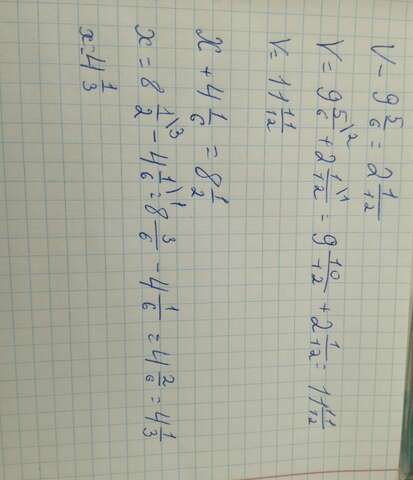 V - 9 5/6 = 2 1/12
V = 9 5/6\2 + 2 1/12\1 = 9 10/12 + 2 1/12 = 11 11/12
V = 11 11/12
x + 4 1/6 = 8 1/2
x = 8 1/2\3 - 4 1/6\1 = 8 3/6 - 4 1/6 = 4 2/6 = 4 1/3
x = 4 1/3